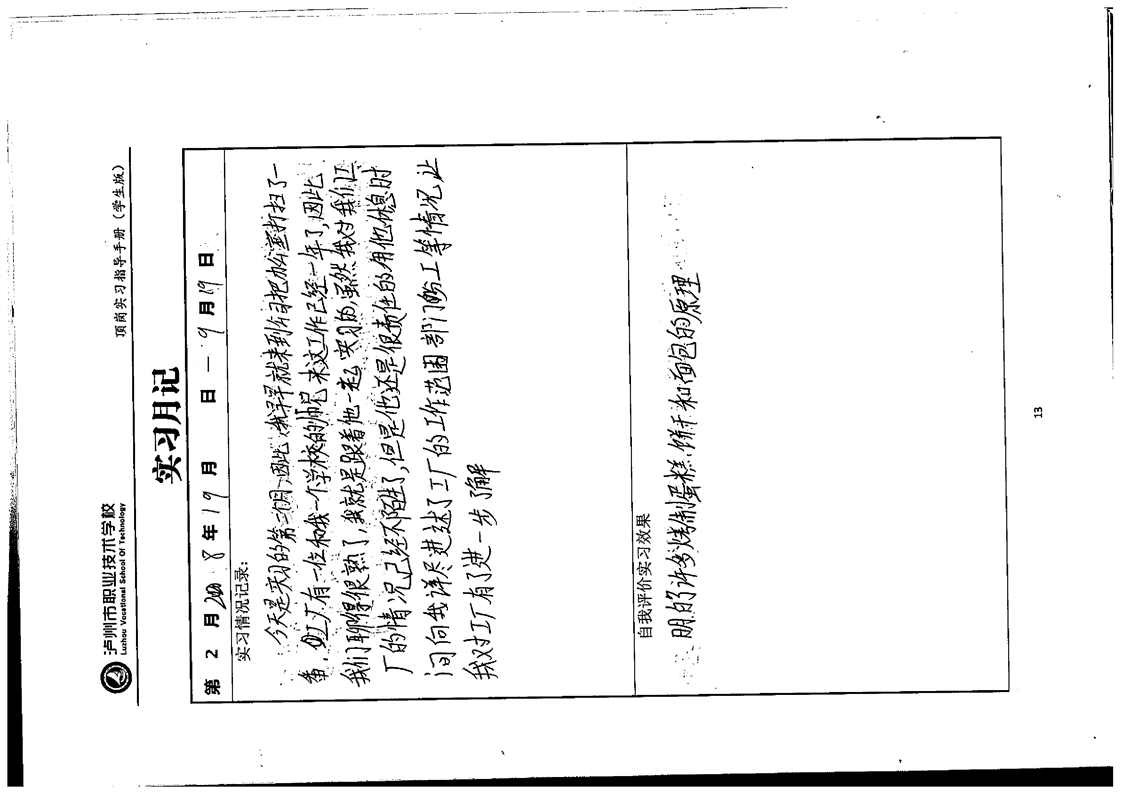 泸州市职业技术学校
Luzhou Vocational School Of Technology
顶岗实习指导手册（学生版）
实习月记
第 2 月 8 年 19 月 日 — 9 月 19 日
实习情况记录：
今天是实习的第二个月，因此，我早早就来到公司把办公室打扫了一
番，工厂有一位和我一个学校的师兄来这工作已经一年了，因此
我们聊得很熟了，我就是跟着他一起实习的，虽然我对我们工
厂的情况已经不陌生了，但是他还是很责任的用他休息时
间向我详尽进述了工厂的工作范围部门分工等情况，让
我对工厂有了进一步了解
自我评价实习效果
明白了许多烤制蛋糕、饼干和面包的原理
13